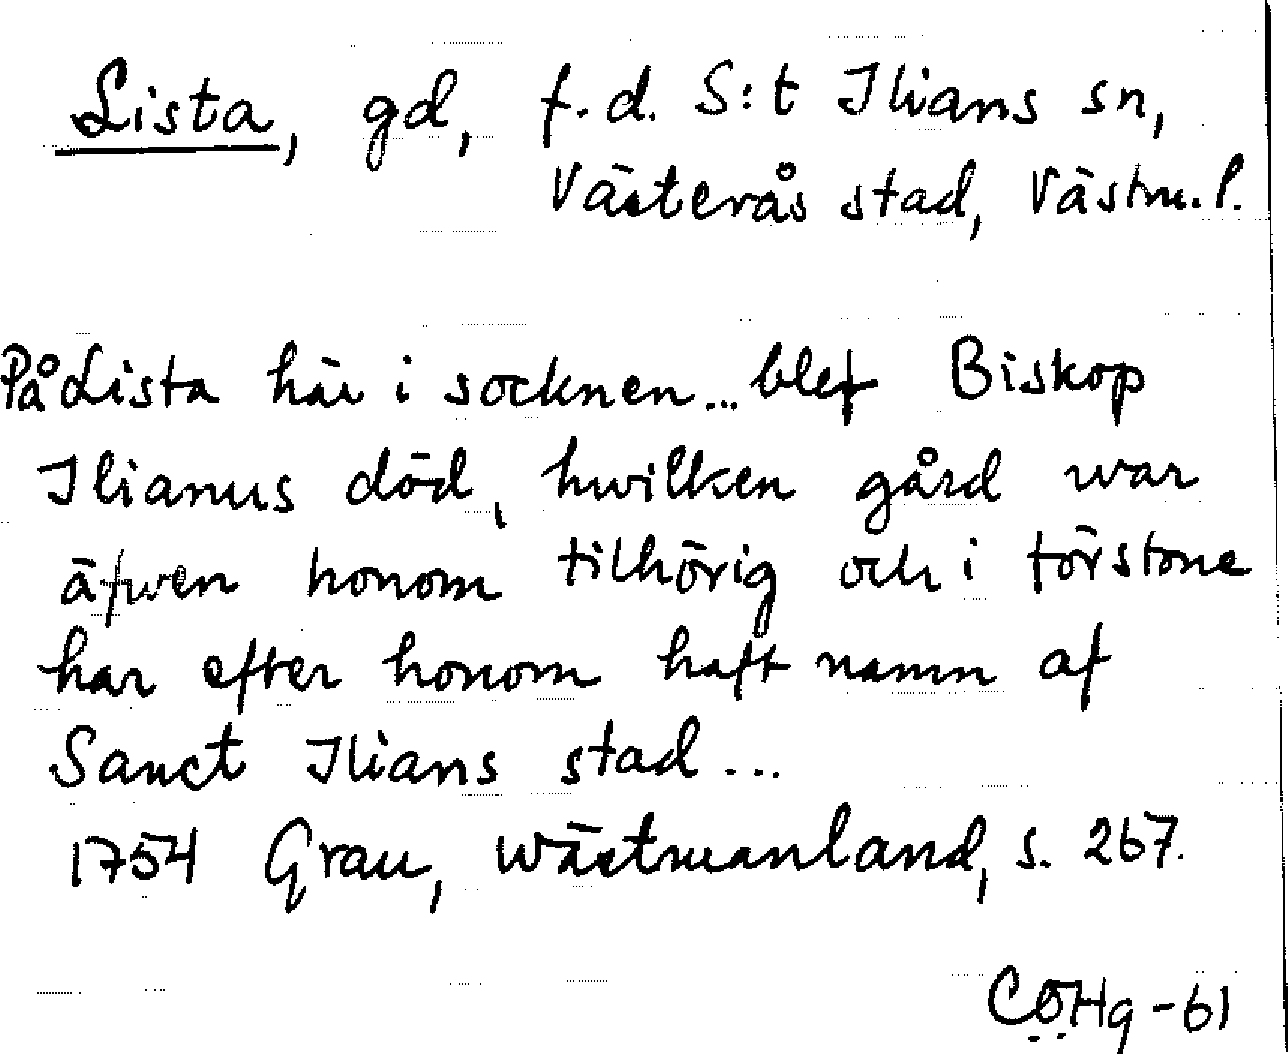 Lista, gd, f.d. S:t Ilians sn,
Västerås stad, Västm.l.
På Lista här i socknen... blef Biskop
Ilianus död, hwilken gård war
äfwen honom tilhörig och i förstone
har efter honom haft namn af
Sanct Ilians stad...
1754 Grau, Wästmanland, s. 267.
CÖHg-61